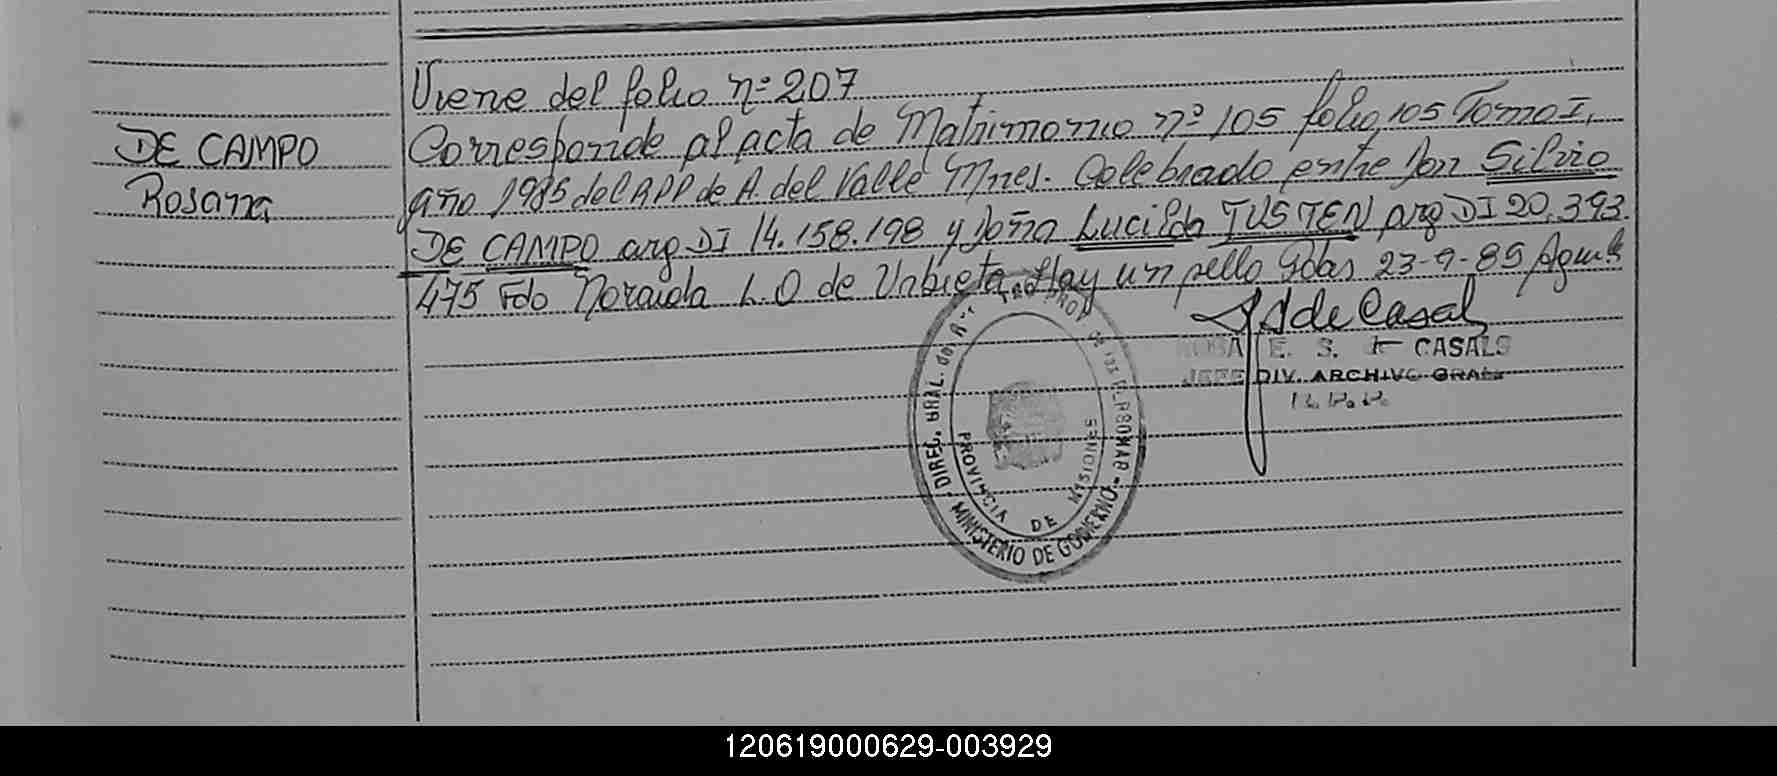 Viene del folio nº 207
DE CAMPO
Rosana
Corresponde al acta de Matrimonio nº 105 folio 105 Tomo I,
año 1985 del RPP de A. del Valle Mnes. Celebrado entre Don Silvio
DE CAMPO arg DI 14.158.198 y Doña Lucilda TUSTEN arg DI 20.393.
475 Fdo Noraida L.O de Urbieta Hay un sello Gdas 23-9-85
E. S. de CASALS
JEFE DIV. ARCHIVO GRAL
DIREC. GRAL. DE LAS PERSONAS
MINISTERIO DE GOBIERNO
PROVINCIA DE MISIONES
120619000629-003929